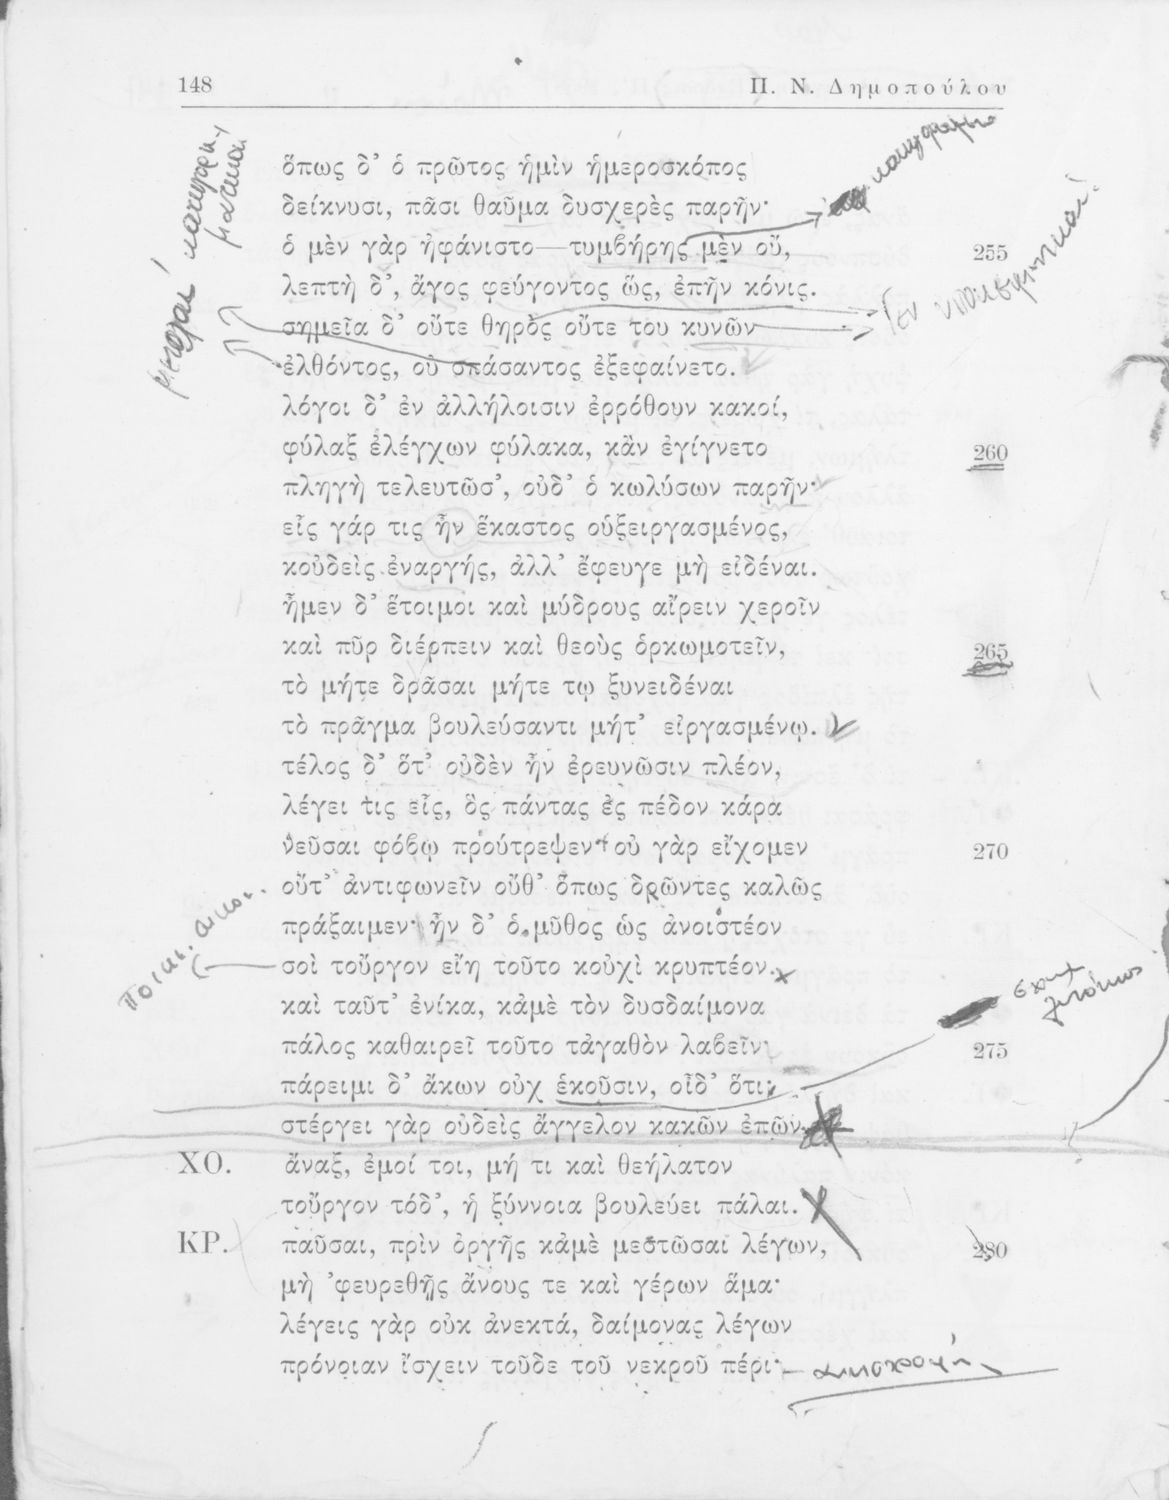 148
Π. Ν. Δημοπούλου
ὅπως δ’ ὁ πρῶτος ἡμὶν ἡμεροσκόπος
δείκνυσι, πᾶσι θαῦμα δυσχερὲς παρῆν·
ὁ μὲν γὰρ ἠφάνιστο—τυμβήρης μὲν οὔ, 255
λεπτὴ δ’, ἄγος φεύγοντος ὥς, ἐπῆν κόνις.
σημεῖα δ’ οὔτε θηρὸς οὔτε του κυνῶν
ἐλθόντος, οὐ σπάσαντος ἐξεφαίνετο.
λόγοι δ’ ἐν ἀλλήλοισιν ἐρρόθουν κακοί,
φύλαξ ἐλέγχων φύλακα, κἂν ἐγίγνετο 260
πληγὴ τελευτῶσ’, οὐδ’ ὁ κωλύσων παρῆν·
εἷς γάρ τις ἦν ἕκαστος οὑξειργασμένος,
κοὐδεὶς ἐναργής, ἀλλ’ ἔφευγε μὴ εἰδέναι.
ἦμεν δ’ ἕτοιμοι καὶ μύδρους αἴρειν χεροῖν
καὶ πῦρ διέρπειν καὶ θεοὺς ὁρκωμοτεῖν, 265
τὸ μήτε δρᾶσαι μήτε τῳ ξυνειδέναι
τὸ πρᾶγμα βουλεύσαντι μήτ’ εἰργασμένῳ.
τέλος δ’ ὅτ’ οὐδὲν ἦν ἐρευνῶσιν πλέον,
λέγει τις εἷς, ὃς πάντας ἐς πέδον κάρα
νεῦσαι φόβῳ προύτρεψεν· οὐ γὰρ εἴχομεν 270
οὔτ’ ἀντιφωνεῖν οὔθ’ ὅπως δρῶντες καλῶς
πράξαιμεν· ἦν δ’ ὁ μῦθος ὡς ἀνοιστέον
σοὶ τοὔργον εἴη τοῦτο κοὐχὶ κρυπτέον.
καὶ ταῦτ’ ἐνίκα, κἀμὲ τὸν δυσδαίμονα
πάλος καθαιρεῖ τοῦτο τἀγαθὸν λαβεῖν· 275
πάρειμι δ’ ἄκων οὐχ ἑκοῦσιν, οἶδ’ ὅτι·
στέργει γὰρ οὐδεὶς ἄγγελον κακῶν ἐπῶν.
ΧΟ. ἄναξ, ἐμοί τοι, μή τι καὶ θεήλατον
τοὔργον τόδ’, ἡ ξύννοια βουλεύει πάλαι.
ΚΡ. παῦσαι, πρὶν ὀργῆς κἀμὲ μεστῶσαι λέγων, 280
μὴ ’φευρεθῇς ἄνους τε καὶ γέρων ἅμα·
λέγεις γὰρ οὐκ ἀνεκτά, δαίμονας λέγων
πρόνοιαν ἴσχειν τοῦδε τοῦ νεκροῦ πέρι·